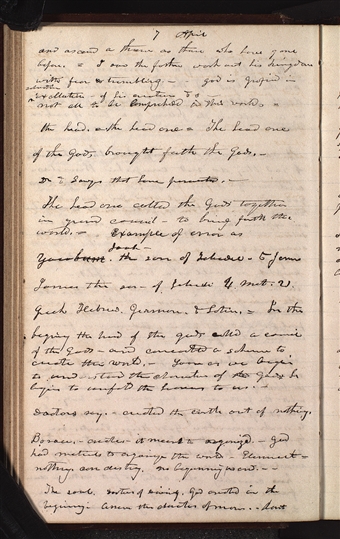 7 April
and ascend a throne as those who have gone
before. & I saw the father work out his kingdom
with fear & trembling. — God is glorified in
salvation
exaltation — of his creatures &c —
not all to be comprehended in this world,
the head. the head one. The head one
of the Gods, brought forth the Gods, —
Dr & Lawyers that have persecuted. —
The head one called the Gods together
in grand council — to bring forth the
world. — Example of error as
Jacob —
the son of Zebedee — to James
James the son of Zebedee 4 Mat. 21
Greek, Hebrew, German, & Latin, — In the
begining the head of the gods called a council
of the Gods — and concocted a scheme to
create this world. — Soon as we begin
to understand the character of the Gods he
begin to unfold the heavens to us. —
Doctors say. — created the earth out of nothing.
— created it meant to organized. — God
had materials to organize the world. — Element —
nothing can destroy. no beginning no end. —
The soul. Doctors of Divinity. God created in the
beginning. the character of man. — dont